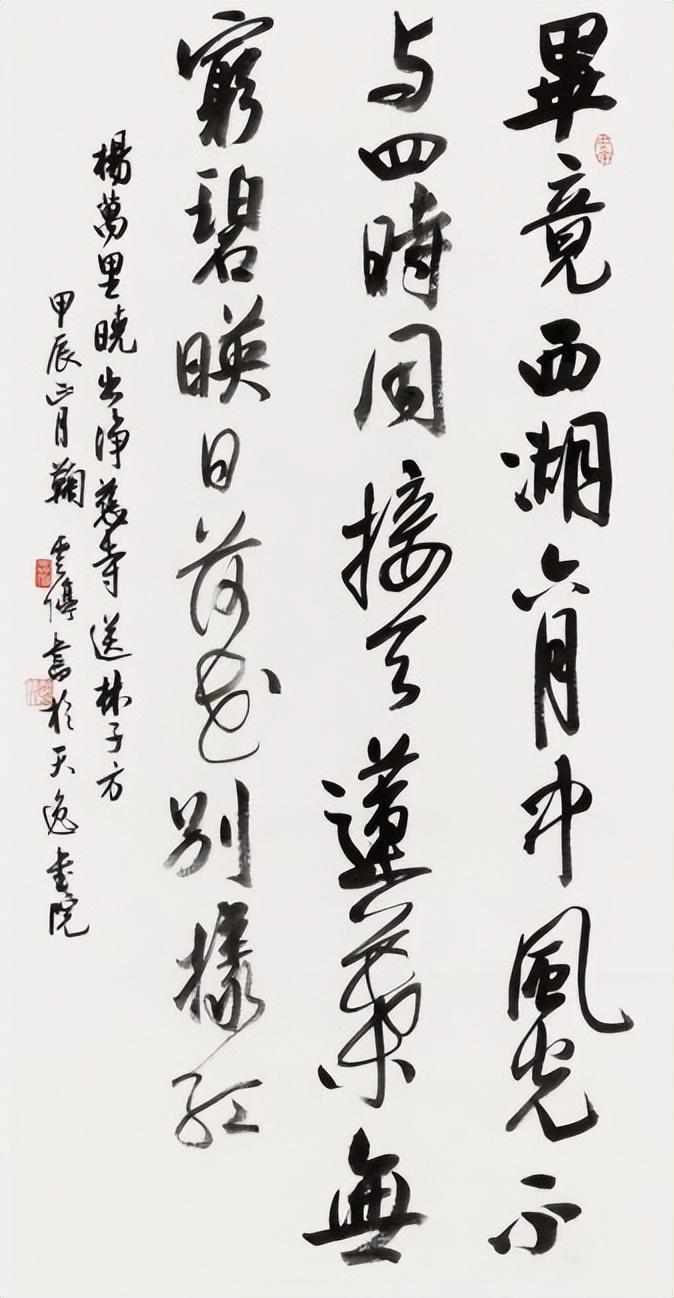 畢竟西湖六月中風光不
与四時同接天蓮葉無
窮碧映日荷花別樣紅
楊萬里曉出淨慈寺送林子方
甲辰正月鞠雲博書於天逸書院